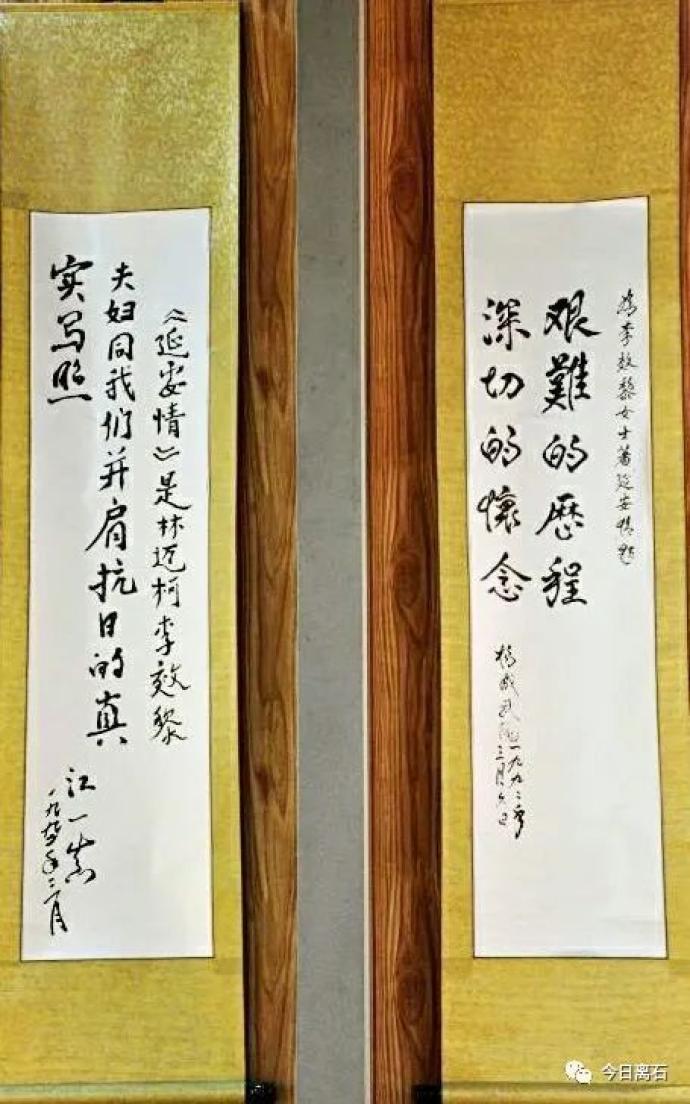 为李效黎女士著延安情题
艰難的歷程
深切的懷念
杨成武
一九九二年
三月六日
《延安情》是林迈柯李效黎
夫妇同我们并肩抗日的真
实写照
江一真
今日离石